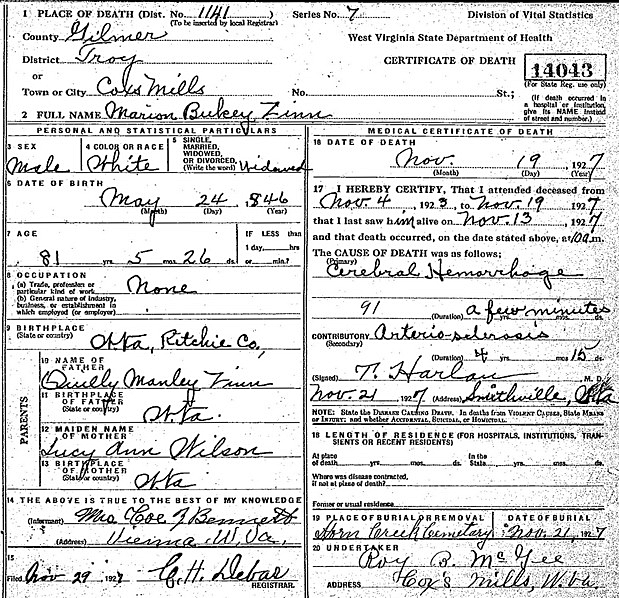 1 PLACE OF DEATH (Dist. No. 1141) Series No. 7 Division of Vital Statistics
(To be inserted by local Registrar)
County Gilmer West Virginia State Department of Health
District Troy CERTIFICATE OF DEATH 14043
or
Town or City Coxs Mills No. St.; (For State Reg. use only)
(If death occurred in a hospital or institution, give its NAME instead of street and number.)
2 FULL NAME Marion Bukey Zinn
PERSONAL AND STATISTICAL PARTICULARS
3 SEX 4 COLOR OR RACE 5 SINGLE, MARRIED, WIDOWED, OR DIVORCED, (Write the word)
Male White Widowed
6 DATE OF BIRTH
May 24 , 846
(Month) (Day) (Year)
7 AGE IF LESS than
1 day, hrs
81 yrs 5 mos 26 ds. or min.?
8 OCCUPATION
(a) Trade, profession or particular kind of work None
(b) General nature of industry, business, or establishment in which employed (or employer)
9 BIRTHPLACE
(State or country) W.Va, Ritchie Co,
PARENTS
10 NAME OF FATHER
Quilly Manley Zinn
11 BIRTHPLACE OF FATHER
(State or country) W.Va.
12 MAIDEN NAME OF MOTHER
Lucy Ann Wilson
13 BIRTHPLACE OF MOTHER
(State or country) W.Va
14 THE ABOVE IS TRUE TO THE BEST OF MY KNOWLEDGE
(Informant) Mrs Coe Z Bennett
(Address) Vienna W.Va.
15
Filed Nov 29 , 1927 C. H. Debar
REGISTRAR
MEDICAL CERTIFICATE OF DEATH
16 DATE OF DEATH
Nov. 19 1927
(Month) (Day) (Year)
17 I HEREBY CERTIFY, That I attended deceased from
Nov. 4 , 1923, to Nov. 19 1927
that I last saw him alive on Nov. 13 1927
and that death occurred, on the date stated above, at 10 a.m.
The CAUSE OF DEATH was as follows;
(Primary) Cerebral Hemorrhage
91 (Duration) a few minutes yrs. mos. ds.
CONTRIBUTORY Arterio-sclerosis
(Secondary)
(Duration) 4 yrs. mos 15 ds.
(Signed) T. Harlan M. D.
Nov. 21 , 1927 (Address) Smithville, W.Va
NOTE: State the Disease Causing Death. In deaths from Violent Causes, State Means or Injury; and whether Accidental, Suicidal, or Homicidal.
18 LENGTH OF RESIDENCE (FOR HOSPITALS, INSTITUTIONS, TRANSIENTS OR RECENT RESIDENTS)
At place of death yrs. mos. ds. In the State yrs. mos. ds.
Where was disease contracted,
if not at place of death?
Former or usual residence
19 PLACE OF BURIAL OR REMOVAL DATE OF BURIAL
Horn Creek Cemetary Nov. 21, 1927
20 UNDERTAKER Roy B. McGee
ADDRESS Cox's Mills, W.Va